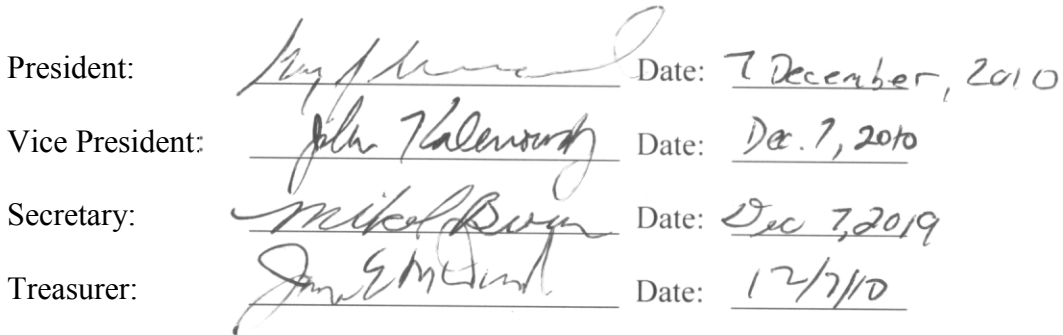 President: Date: 7 December, 2010
Vice President: John Date: Dec. 7, 2010
Secretary: Mikel Date: Dec 7, 2019
Treasurer: Date: 12/7/10